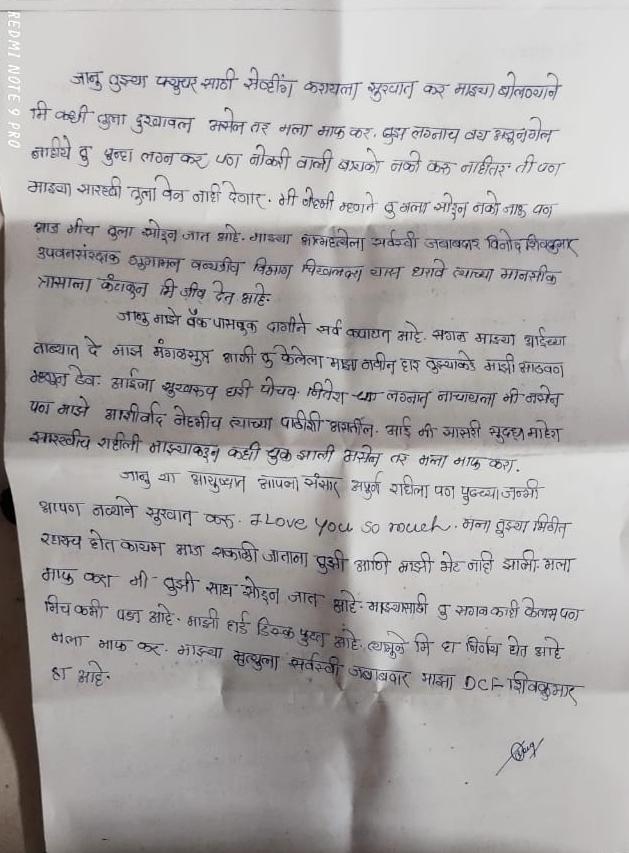 REDMI NOTE 9 PRO
जानु तुझ्या फ्युचर साठी सेव्हींग करायला सुरवात कर माझ्या बोलण्याने
मि कधी तुला दुखावल असेन तर मला माफ कर. तुझ लग्नाच वय अजून गेल
नाहीये तु पुन्हा लग्न कर पण नोकरी वाली बायको नको करू नाहीतर ती पण
माझ्या सारखी तुला वेळ नाही देणार. मी नेहमी म्हणते तु मला सोडून नको जाऊ पण
आज मीच तुला सोडून जात आहे. माझ्या आत्महत्येला सर्वस्वी जबाबदार विनोद शिवकुमार
उपवनसंरक्षक गुगामल वन्यजीव विभाग चिखलदरा यास धरावे त्याच्या मानसीक
त्रासाला कंटाळून मि जीव देत आहे.
जानु माझे बँक पासबुक दागीने सर्व कपाटात आहे. सगळ माझ्या आईच्या
ताब्यात दे माझ मंगळसुत्र आणी तु केलेला माझा नवीन हार तुझ्याकडे माझी आठवण
म्हणून ठेव. आईला सुखरूप घरी पोचव. नितेश च्या लग्नात नाचायला मी नसेन
पण माझे आशीर्वाद नेहमीच त्याच्या पाठीशी असतील. आई मी सासरी सुद्धा माहेरा
सारखीच राहीली माझ्याकडून कधी चुक झाली असेल तर मला माफ करा.
जानु या आयुष्यात आपला संसार अपुर्ण राहिला पण पुढच्या जन्मी
आपण नव्याने सुरवात करू. I Love You so much. मला तुझ्या मिठीत
रहायच होत कायम आज सकाळी जाताना तुझी आणि माझी भेट नाही झाली. मला
माफ करा मी तुझी साथ सोडून जात आहे. माझ्यासाठी तु सगळ काही केलस पण
मिच कमी पडत आहे. माझी हार्ड डिस्क फुटत आहे. त्यामुळे मि हा निर्णय घेत आहे
मला माफ कर. माझ्या मृत्युला सर्वस्वी जबाबदार माझा DCF शिवकुमार
हा आहे.